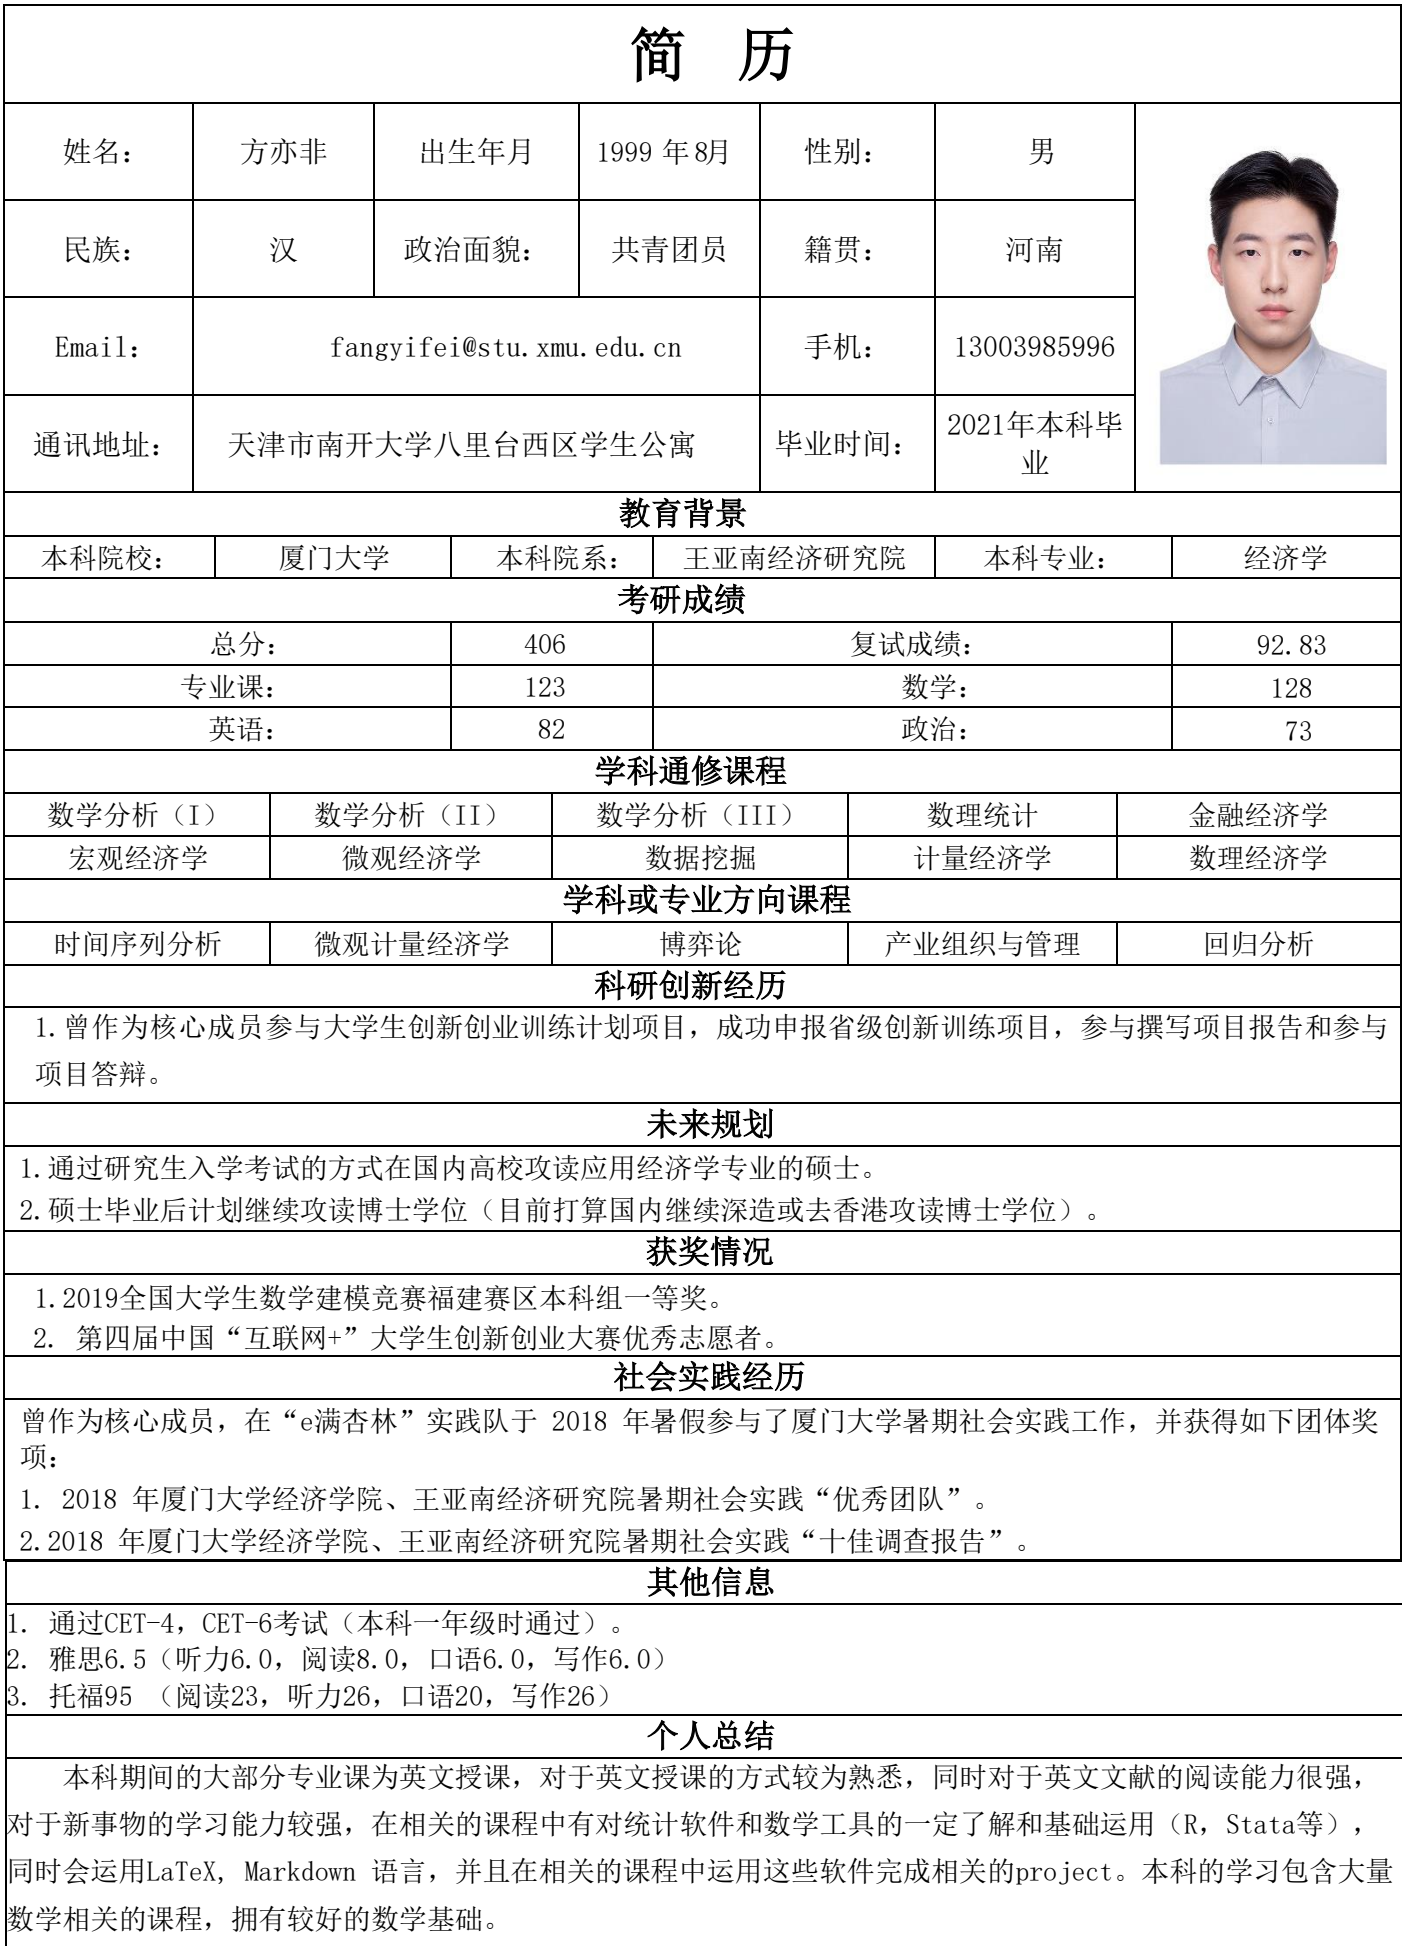 简 历
姓名： 方亦非 出生年月 1999 年8月 性别： 男
民族： 汉 政治面貌： 共青团员 籍贯： 河南
Email： fangyifei@stu.xmu.edu.cn 手机： 13003985996
通讯地址： 天津市南开大学八里台西区学生公寓 毕业时间： 2021年本科毕
业
教育背景
本科院校： 厦门大学 本科院系： 王亚南经济研究院 本科专业： 经济学
考研成绩
总分： 406 复试成绩： 92.83
专业课： 123 数学： 128
英语： 82 政治： 73
学科通修课程
数学分析（I） 数学分析（II） 数学分析（III） 数理统计 金融经济学
宏观经济学 微观经济学 数据挖掘 计量经济学 数理经济学
学科或专业方向课程
时间序列分析 微观计量经济学 博弈论 产业组织与管理 回归分析
科研创新经历
1.曾作为核心成员参与大学生创新创业训练计划项目，成功申报省级创新训练项目，参与撰写项目报告和参与
项目答辩。
未来规划
1.通过研究生入学考试的方式在国内高校攻读应用经济学专业的硕士。
2.硕士毕业后计划继续攻读博士学位（目前打算国内继续深造或去香港攻读博士学位）。
获奖情况
1.2019全国大学生数学建模竞赛福建赛区本科组一等奖。
2. 第四届中国“互联网+”大学生创新创业大赛优秀志愿者。
社会实践经历
曾作为核心成员，在“e满杏林”实践队于 2018 年暑假参与了厦门大学暑期社会实践工作，并获得如下团体奖
项：
1. 2018 年厦门大学经济学院、王亚南经济研究院暑期社会实践“优秀团队”。
2.2018 年厦门大学经济学院、王亚南经济研究院暑期社会实践“十佳调查报告”。
其他信息
1. 通过CET-4，CET-6考试（本科一年级时通过）。
2. 雅思6.5（听力6.0，阅读8.0，口语6.0，写作6.0）
3. 托福95 （阅读23，听力26，口语20，写作26）
个人总结
本科期间的大部分专业课为英文授课，对于英文授课的方式较为熟悉，同时对于英文文献的阅读能力很强，
对于新事物的学习能力较强，在相关的课程中有对统计软件和数学工具的一定了解和基础运用（R，Stata等），
同时会运用LaTeX, Markdown 语言，并且在相关的课程中运用这些软件完成相关的project。本科的学习包含大量
数学相关的课程，拥有较好的数学基础。